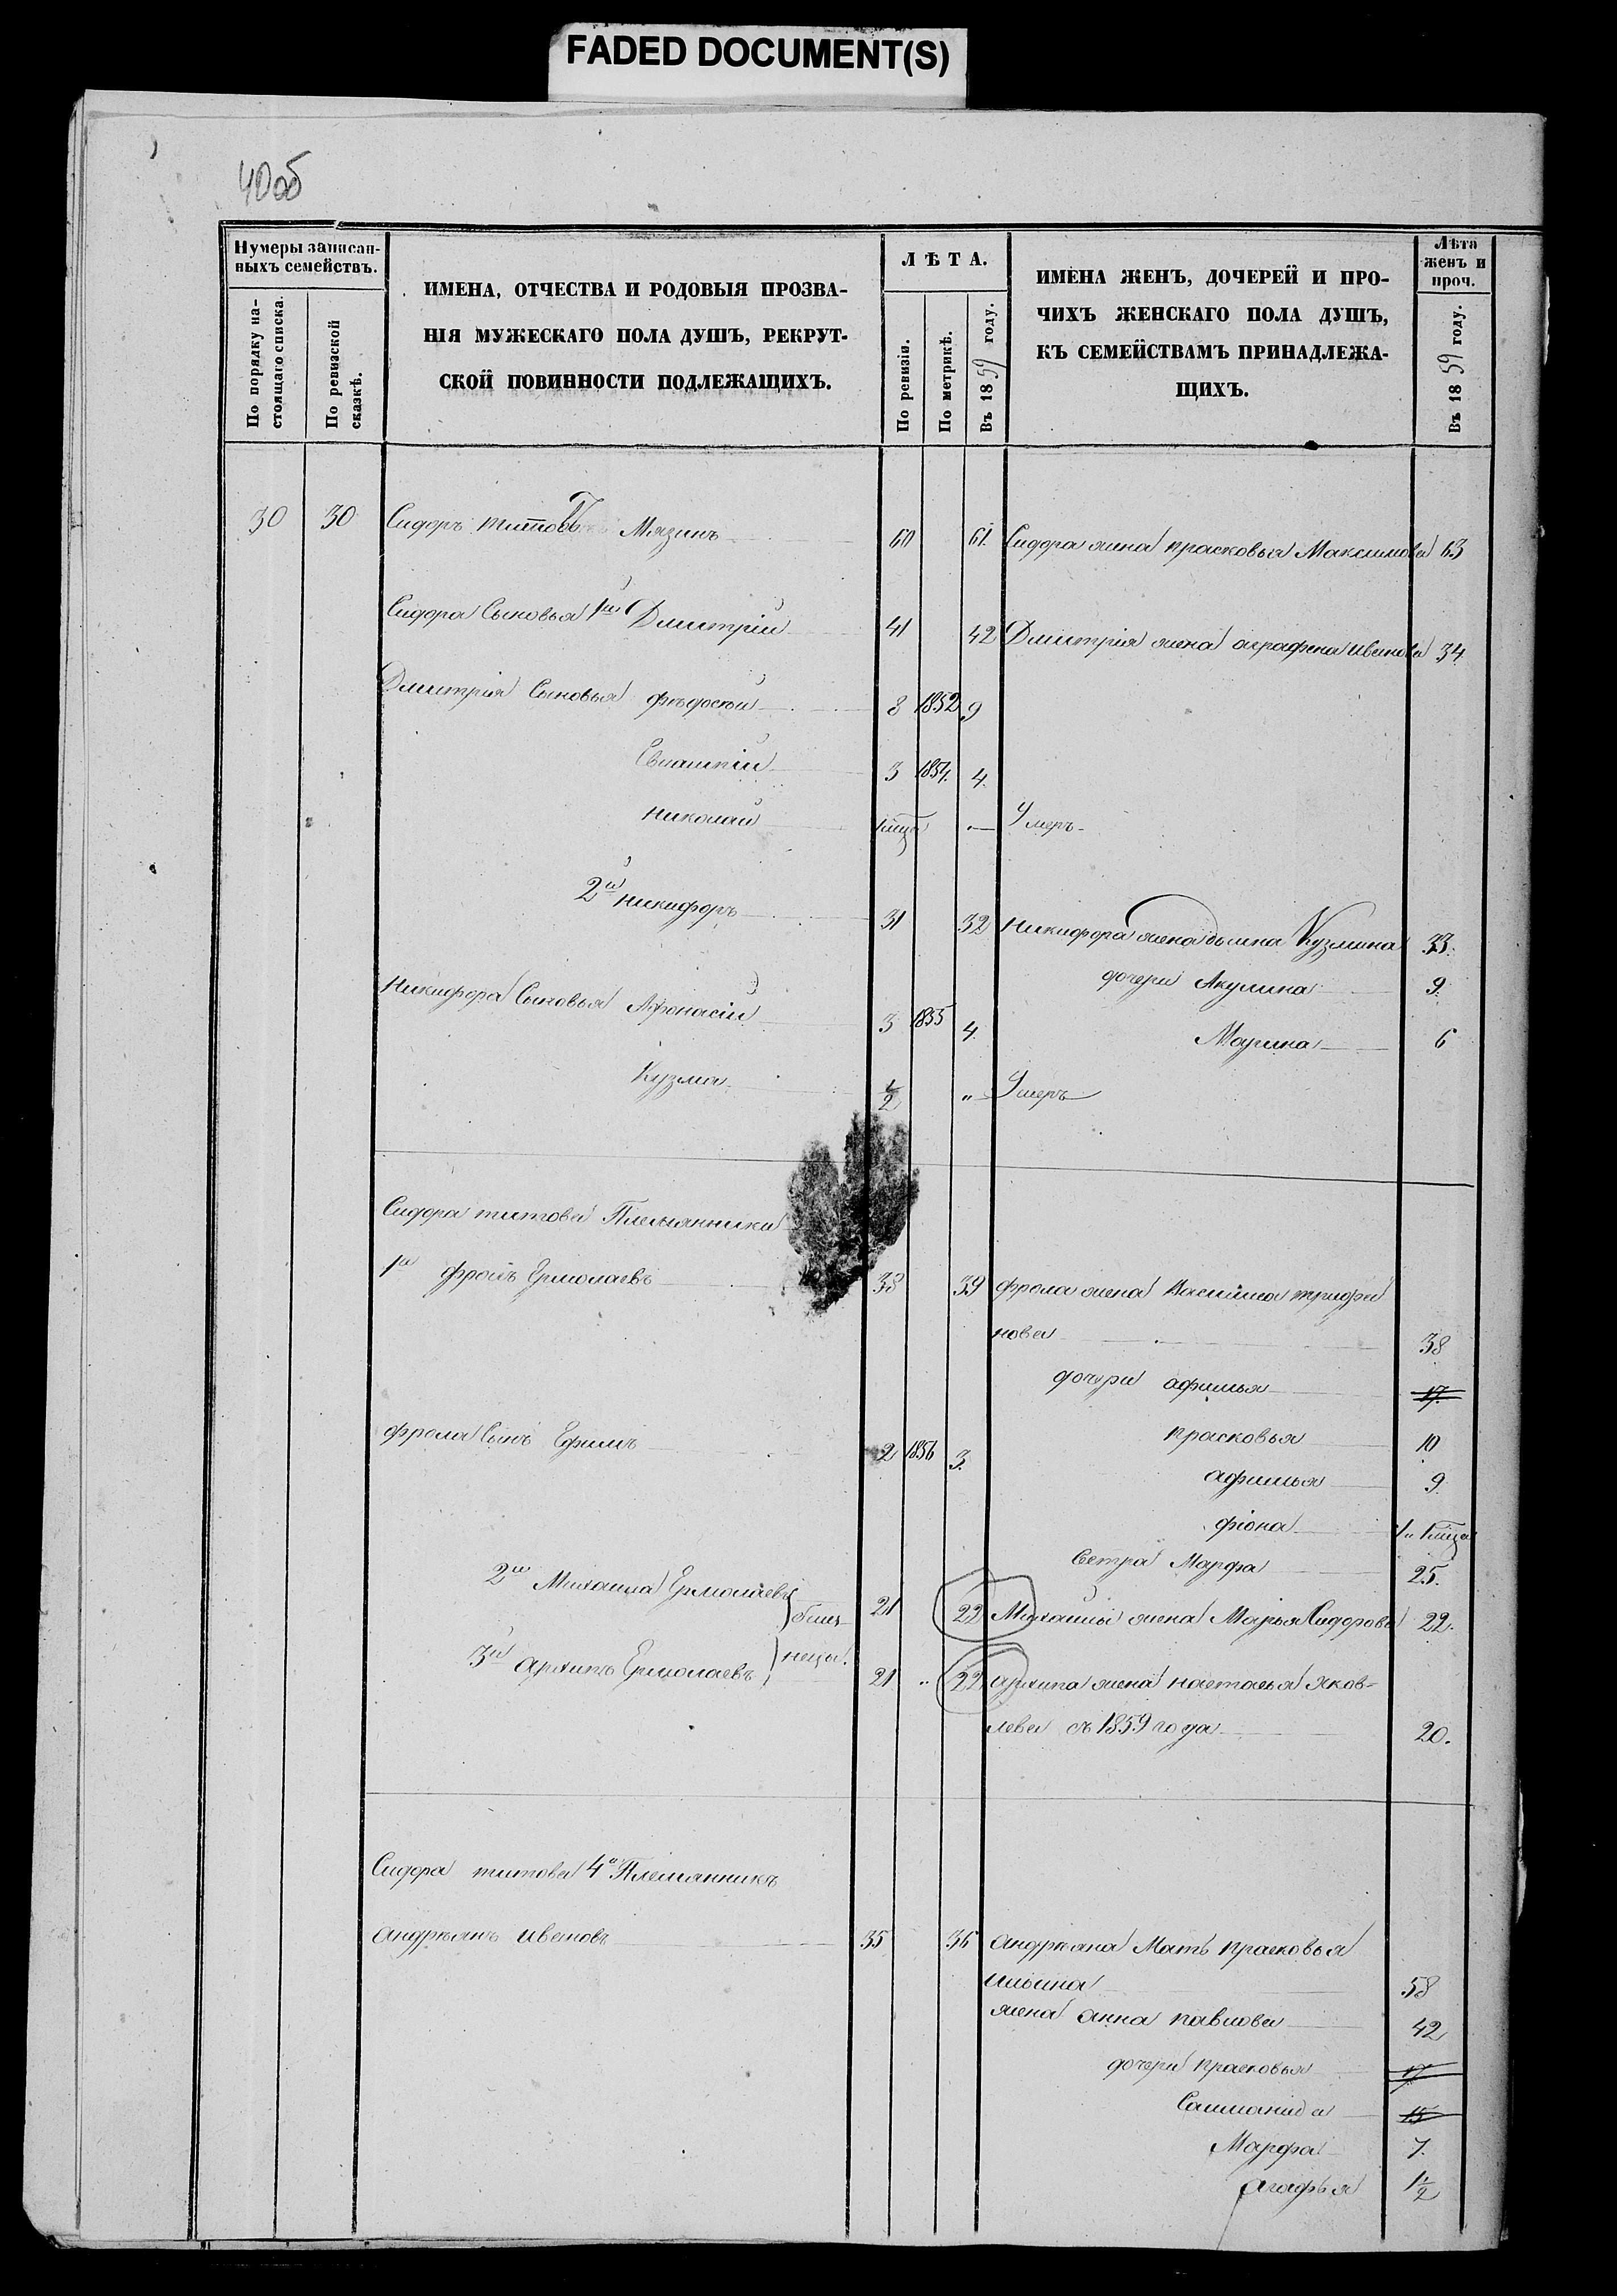 FADED DOCUMENT(S)
40об
Нумеры записан-
ныхъ семействъ.
По порядку на-
стоящаго списка.
По ревизской
сказкѣ.
ИМЕНА, ОТЧЕСТВА И РОДОВЫЯ ПРОЗВА-
НІЯ МУЖЕСКАГО ПОЛА ДУШЪ, РЕКРУТ-
СКОЙ ПОВИННОСТИ ПОДЛЕЖАЩИХЪ.
ЛѢТА.
По ревизіи.
По метрикѣ.
Въ 1859 году.
ИМЕНА ЖЕНЪ, ДОЧЕРЕЙ И ПРО-
ЧИХЪ ЖЕНСКАГО ПОЛА ДУШЪ,
КЪ СЕМЕЙСТВАМЪ ПРИНАДЛЕЖА-
ЩИХЪ.
Лѣта
женъ и
проч.
Въ 1859 году.
30 30 Сидоръ титовъ Мязинъ 60 61. Сидора жена прасковья Максимова 63
Сидора Сыновья 1й Дмитрій 41 42 Дмитрія жена аграфена иванова 34
Дмитрія Сыновья 8 1852 9
3 1854. 4.
Николай Умеръ
2й никифоръ 31 32 никифора жена Кузмина 33.
дочери Акулина 9.
никифора Сыновья Афонасій 3 1855 4.
Марина 6
Кузма 1/2 „ Умеръ
Сидора титова Племянники
1й фролъ Ермолаевъ 38 39 фрола жена Василиса трифа
нова 38
дочери афимья 17.
фрола Сынъ Ефимъ 2 1856 3.
прасковья 10
афимья 9.
фіона
Сетра Марфа 25.
2й Михаила Ермолаевъ 21 22 Михайлы жена Марья Сидорова 22.
близ
нецы.
3й архипъ Ермолаевъ 21 „ 22 архипа жена наталья яков-
лева съ 1859 года 20.
Сидора титова 4й Племянникъ
андреянъ ивановъ 35 36 андреяна Мать прасковья
ильина 58
жена анна павлова 42
дочери прасковья 17
Саломанида 15
Марфа 7.
агафья 1/2